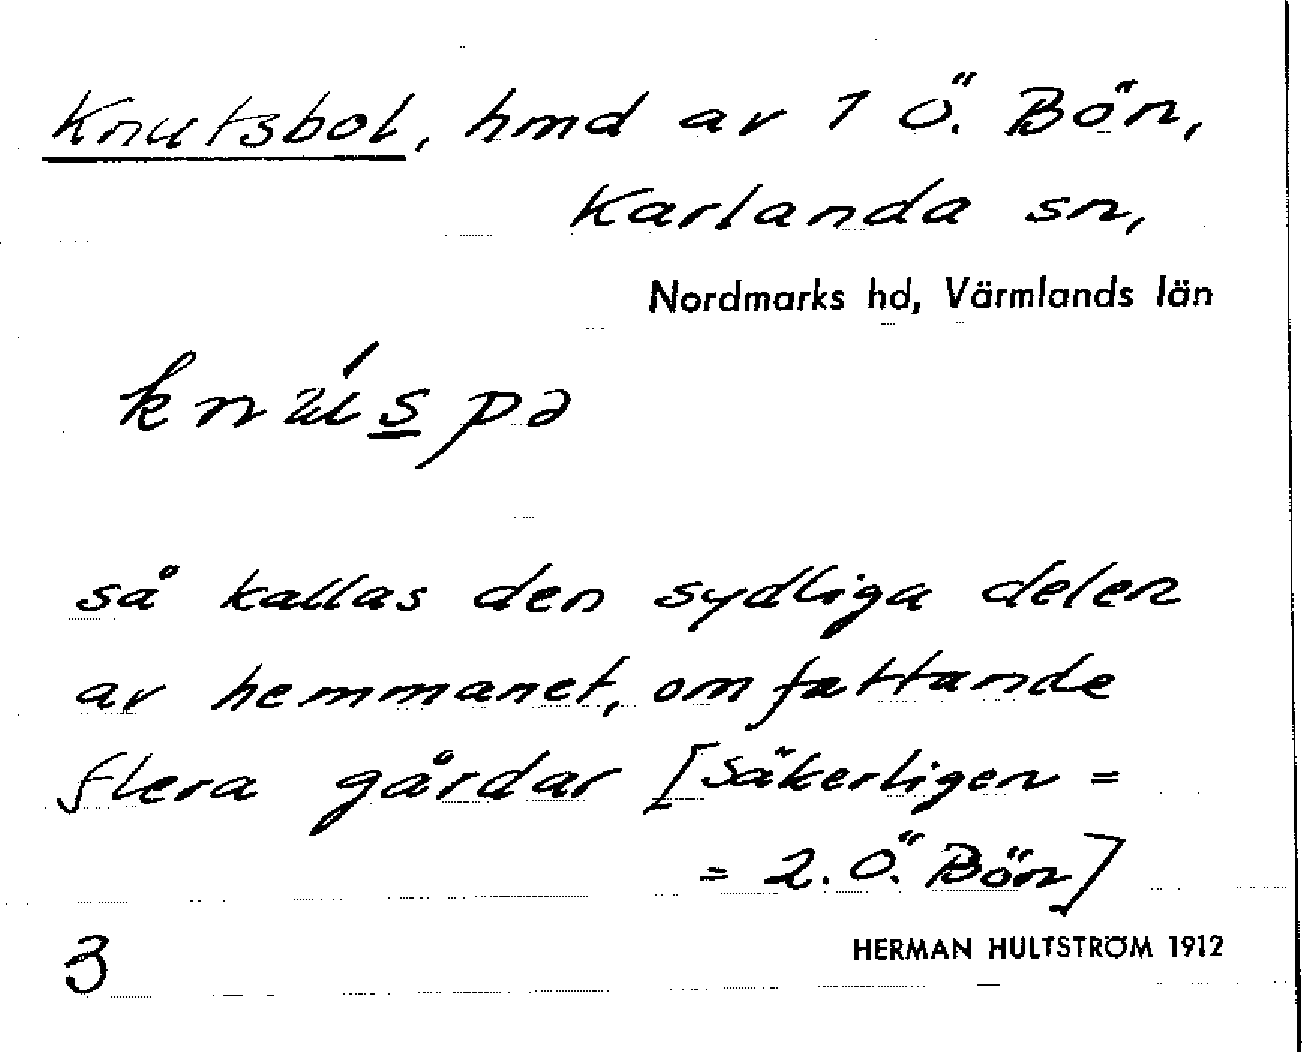 Knutsbol, hmd av 1 Ö. Bön,
Karlanda sn,
Nordmarks hd, Värmlands län
knúspə
så kallas den sydliga delen
av hemmanet, omfattande
flera gårdar [Säkerligen =
= 2. Ö. Bön]
3
HERMAN HULTSTRÖM 1912